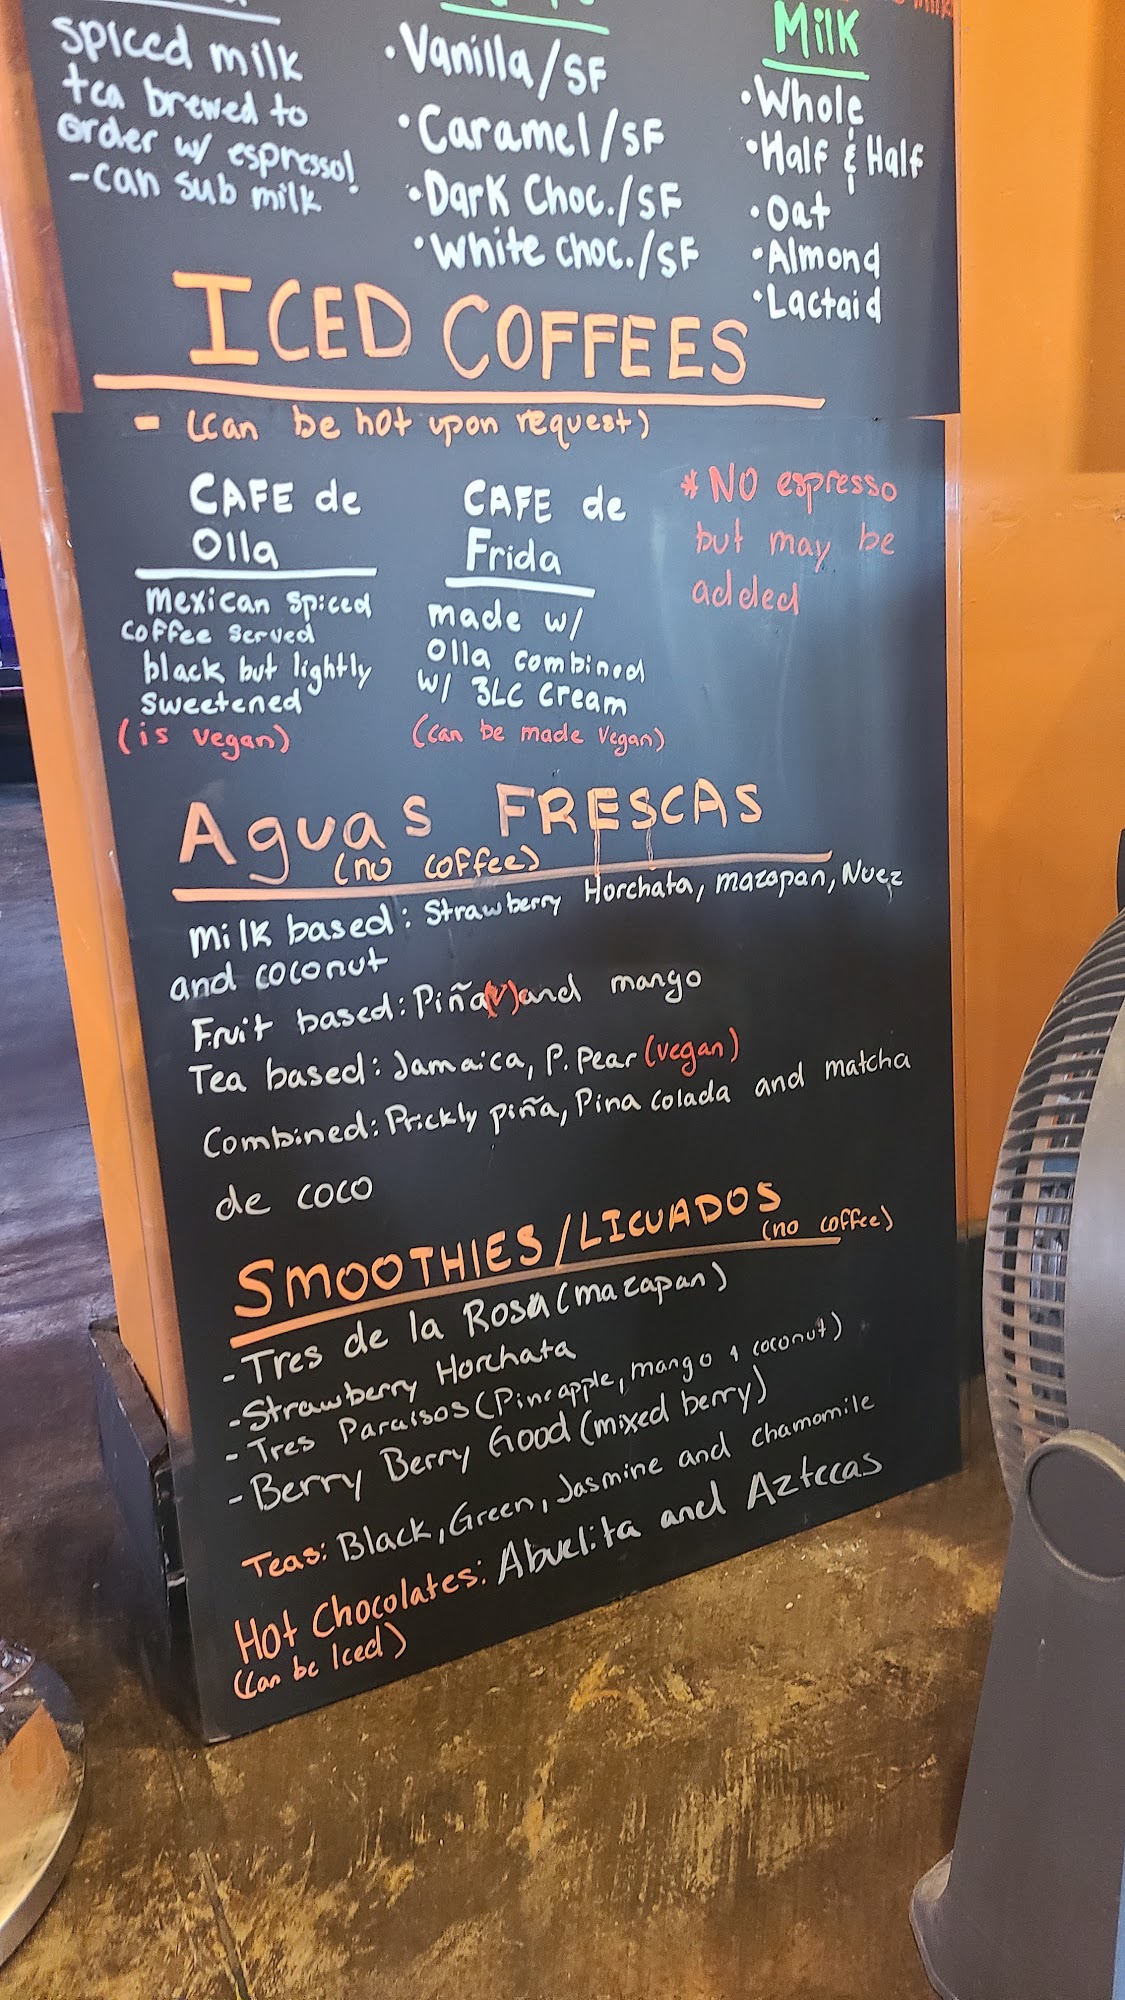 spiced milk
tea brewed to
order w/ espresso!
-can sub milk
•Vanilla/SF
•Caramel/SF
•Dark Choc./SF
•White choc./SF
Milk
•Whole
•Half & Half
•Oat
•Almond
•Lactaid
ICED COFFEES
- (can be hot upon request)
CAFE de
Olla
mexican spiced
coffee served
black but lightly
sweetened
(is vegan)
CAFE de
Frida
made w/
Olla combined
w/ 3LC cream
(can be made vegan)
*NO espresso
but may be
added
Aguas FRESCAS
(no coffee)
Milk based: Strawberry Horchata, mazapan, Nuez
and coconut
Fruit based: Piña(v) and mango
Tea based: Jamaica, P. Pear (vegan)
Combined: Prickly piña, Pina colada and matcha
de coco
SMOOTHIES/LICUADOS
(no coffee)
-Tres de la Rosa (mazapan)
-Strawberry Horchata
-Tres Paraisos (Pineapple, mango & coconut)
-Berry Berry Good (mixed berry)
Teas: Black, Green, Jasmine and chamomile
Hot Chocolates: Abuelita and Aztecas
(can be Iced)